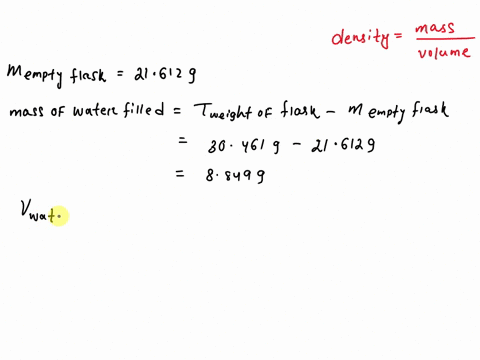 density = mass / volume
m empty flask = 21.612 g
mass of water filled = Tweight of flask - m empty flask
= 30.461 g - 21.612 g
= 8.849 g
Vwat.